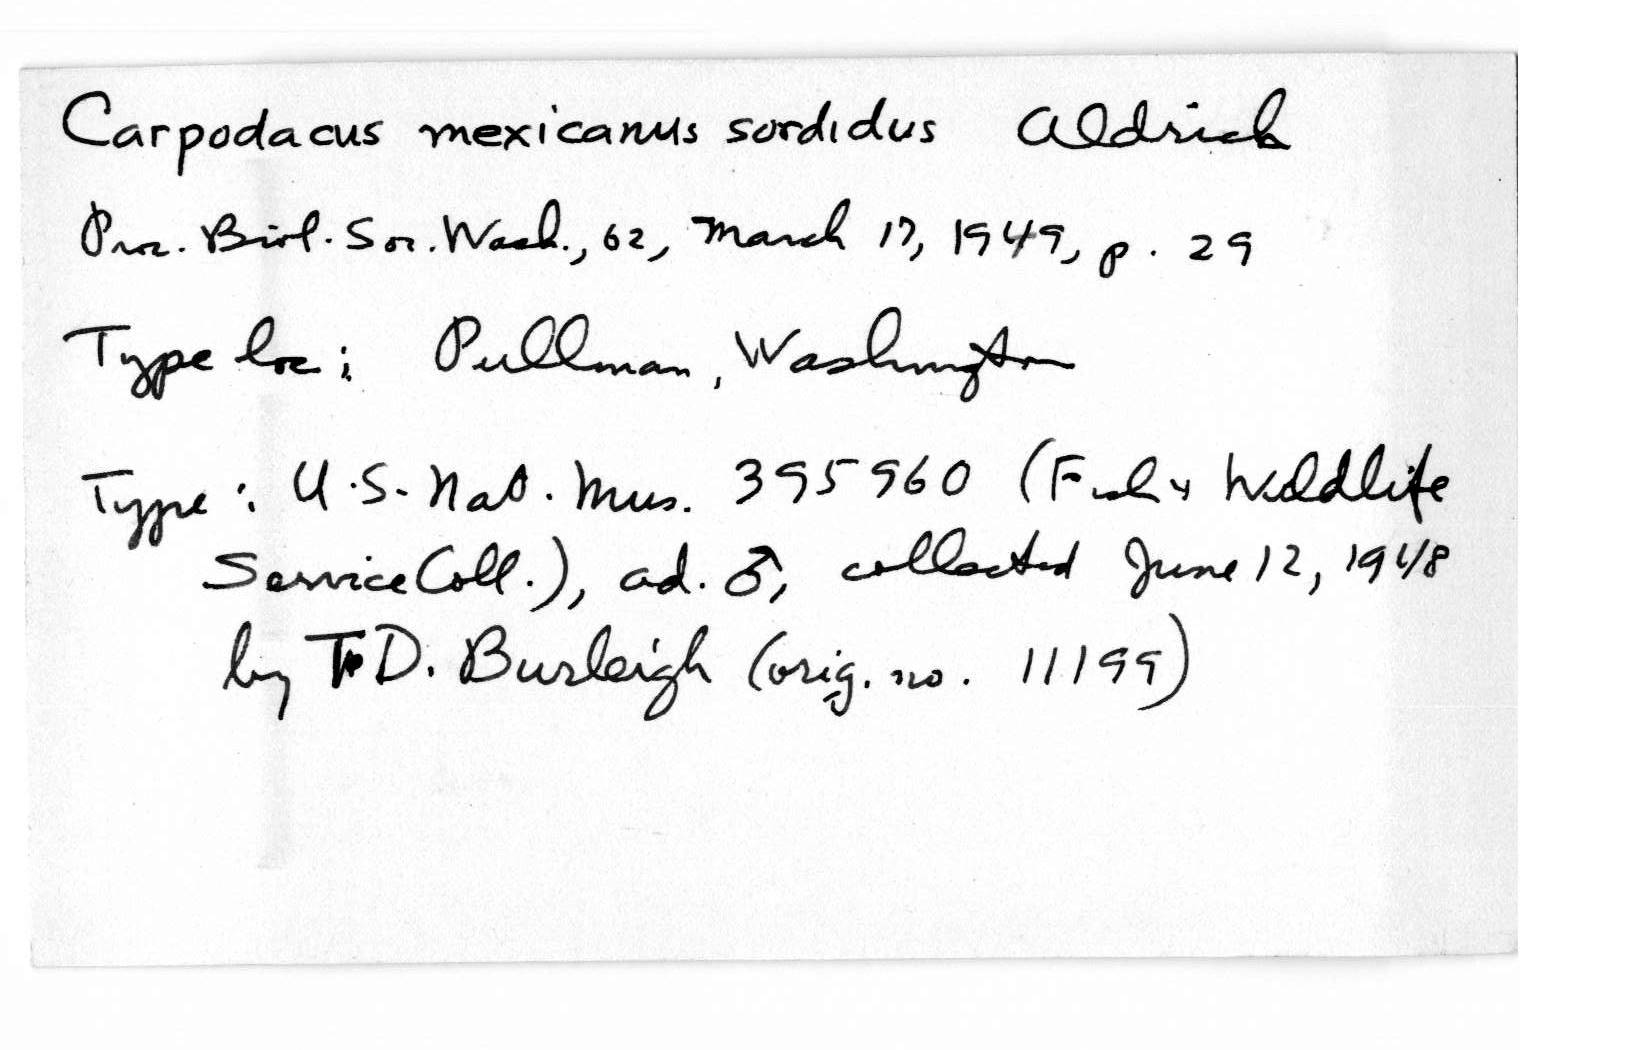 Carpodacus mexicanus sordidus Aldrich
Proc. Biol. Soc. Wash., 62, March 17, 1949, p. 29
Type loc: Pullman, Washington
Type: U.S. Nat. Mus. 395960 (Fish & Wildlife
Service Coll.), ad. ♂, collected June 12, 1948
by T.D. Burleigh (orig. no. 11199)